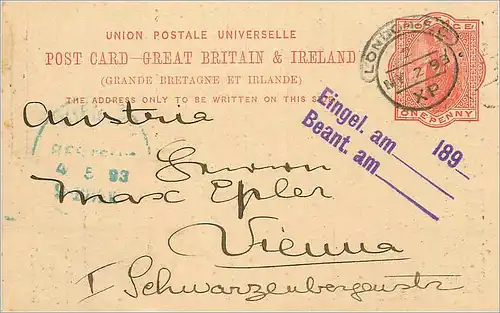 UNION POSTALE UNIVERSELLE
POST CARD—GREAT BRITAIN & IRELAND
(GRANDE BRETAGNE ET IRLANDE)
THE ADDRESS ONLY TO BE WRITTEN ON THIS SIDE
POSTAGE
ONE PENNY
LONDON
MY 2 93
XP
Eingel. am 189
Beant. am
4 5 93
Austria
Herrn
Max Epler
Vienna
I Schwarzenbergenstr